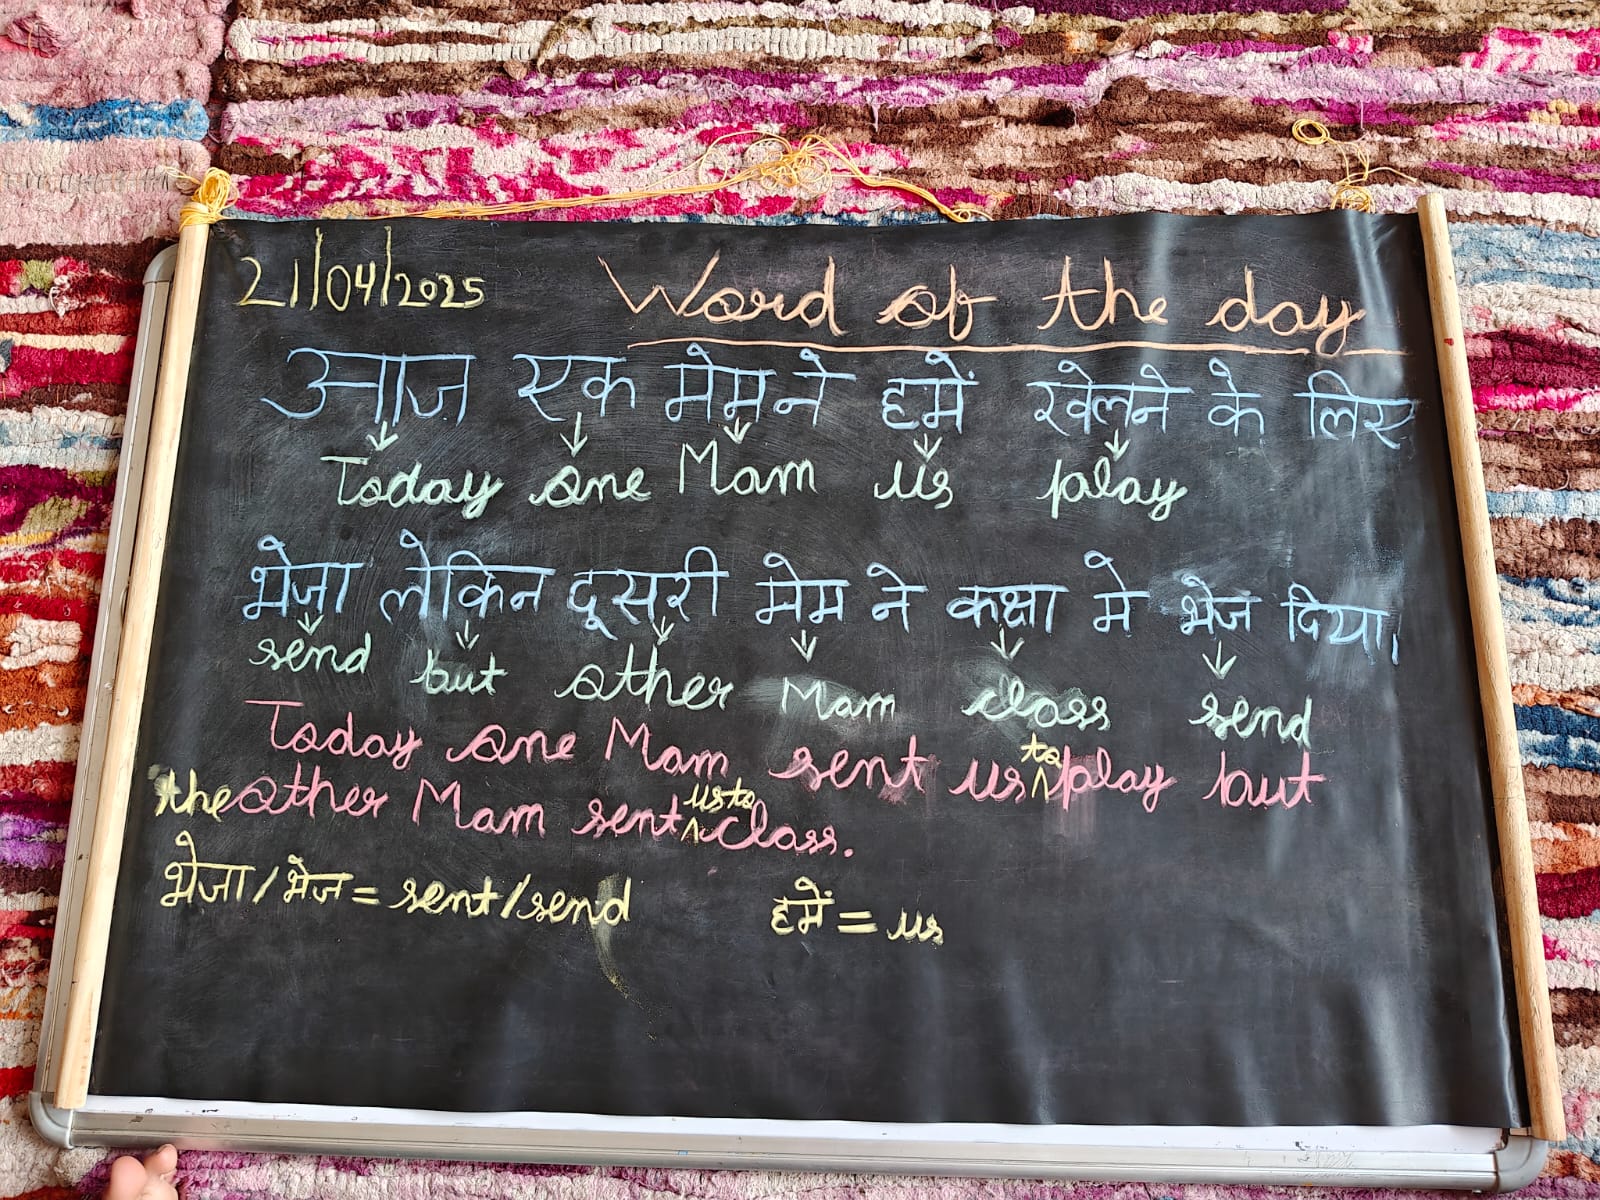 21/04/2025 Word of the day
आज एक मेम ने हमें खेलने के लिए
Today one Mam us play
भेजा लेकिन दूसरी मेम ने कक्षा मे भेज दिया।
send but other Mam class send
Today one Mam sent us to play but
the other Mam sent us to class.
भेजा/भेज = sent/send हमें = us